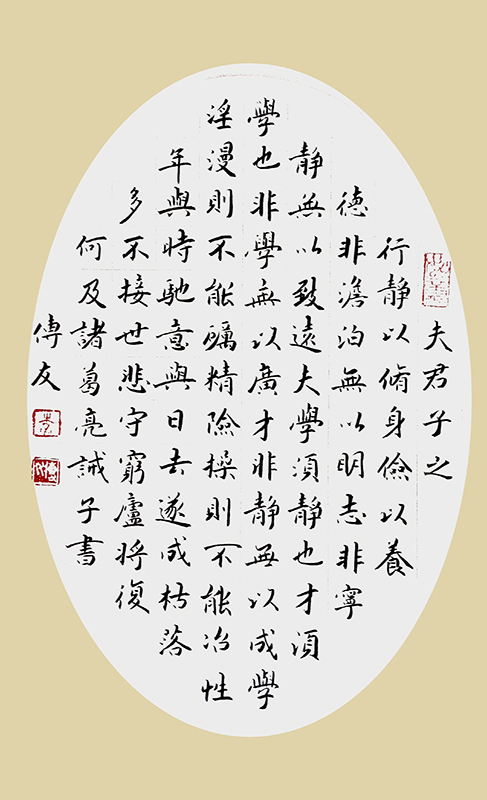 夫君子之
行静以脩身儉以養
德非澹泊無以明志非寧
静無以致遠夫學須静也才須
學也非學無以廣才非静無以成學
淫漫則不能礪精險操則不能冶性
年與時馳意與日去遂成枯落
多不接世悲守窮廬將復
何及諸葛亮誡子書
傅友